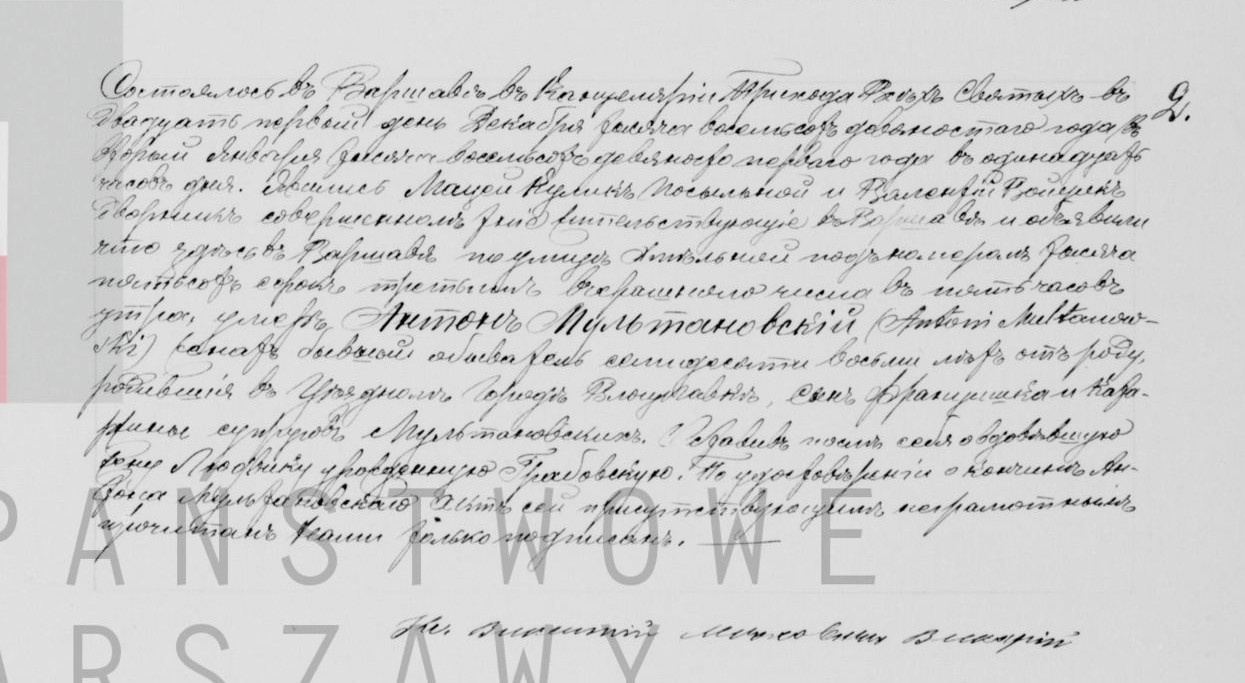 Состоялось въ Варшавѣ въ Канцеляріи Прихода Всѣхъ Святыхъ въ
2.
Двадцать первый день Декабря тысяча восемьсотъ девяностаго года въ
второй Января тысяча восемьсотъ девяносто перваго года въ одинадцать
часовъ дня. Явились Мацей Куликъ посыльной и Валентій Войцекъ
Дворникъ совершеннолѣтніе жительствующіе въ Варшавѣ и объявили
что здѣсь въ Варшавѣ по улицѣ Хмѣльной подъ номеромъ тысяча
пятьсотъ сорокъ третьимъ вчерашняго числа въ пять часовъ
утра, умеръ Антонъ Мультановскій (Antoni Multanow-
ski) бывшій обыватель семидесяти восьми лѣтъ отъ роду,
родившійся въ Уѣздномъ Городѣ Влоцлавкѣ, Сынъ Францишка и Ката-
ржины супруговъ Мультановскихъ. Оставивъ послѣ себя овдовѣвшую
жену Людвику урожденную Грабовскую. По удостовѣреніи о кончинѣ Ан-
тона Мультановскаго Актъ сей присутствующимъ неграмотнымъ
прочитанъ Нами только подписанъ.
Кс. Викентій Викарій
PAŃSTWOWE
WARSZAWY